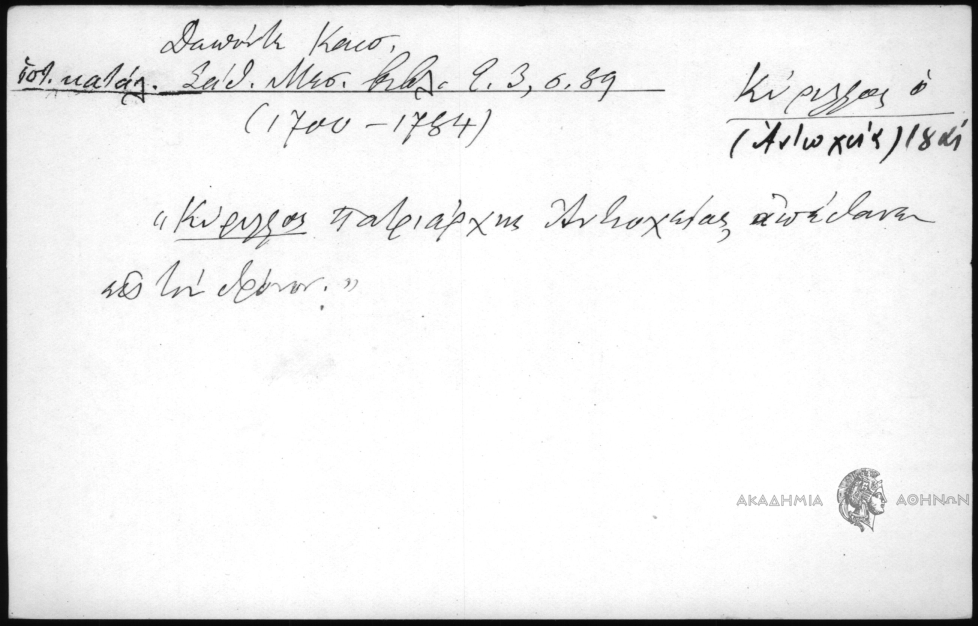 Δαπόντε Καισ.
ἱστ. κατάλ. Σάθ. Μεσ. Βιβλ. τ. 3, σ. 89
(1700 – 1784)
Κύριλλος ὁ
(Ἀντιοχείας)
"Κύριλλος πατριάρχης Ἀντιοχείας, ἀπέθανεν
εἰς τὸν θρόνον."
ΑΚΑΔΗΜΙΑ ΑΘΗΝΩΝ